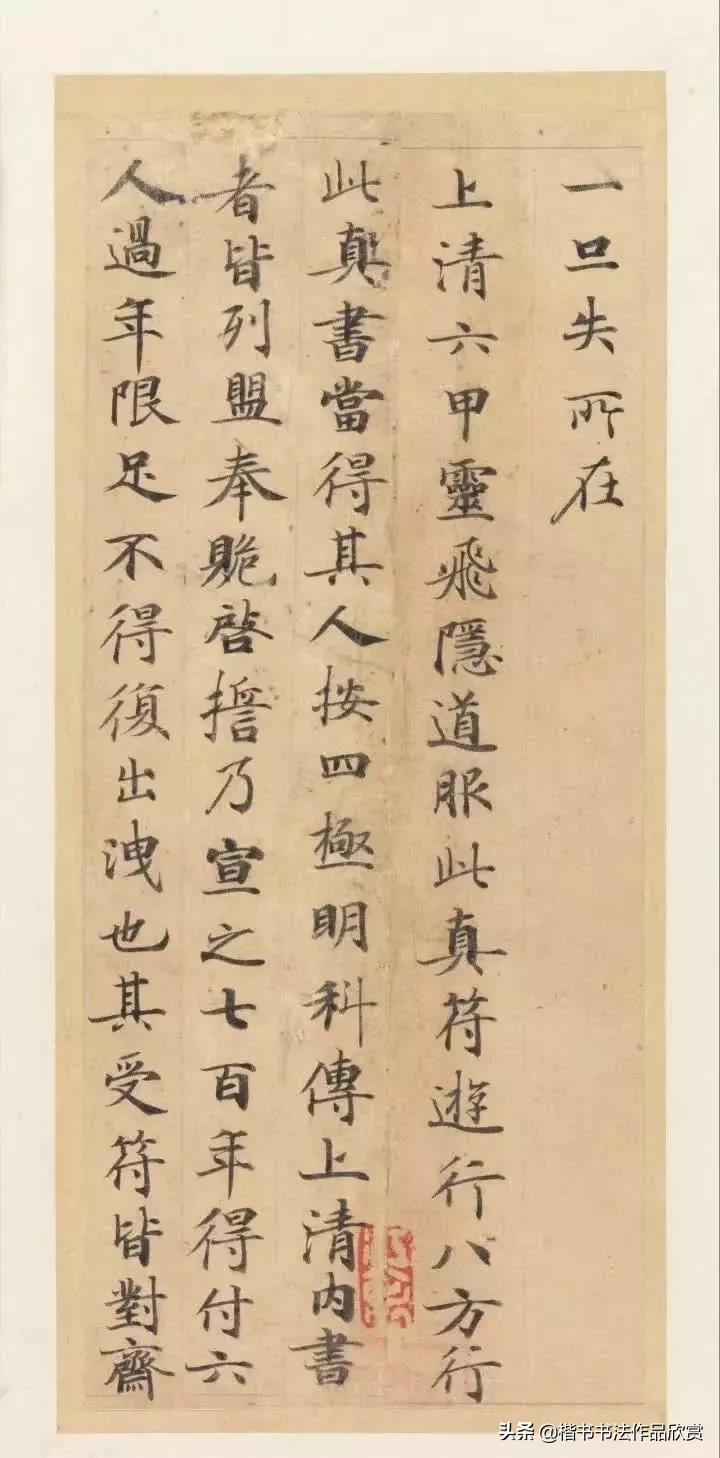 一旦失所在
上清六甲靈飛隱道服此真符遊行八方行
此真書當得其人按四極明科傳上清內書
者皆列盟奉貺啓誓乃宣之七百年得付六
人過年限足不得復出洩也其受符皆對齋
头条 @楷书书法作品欣赏